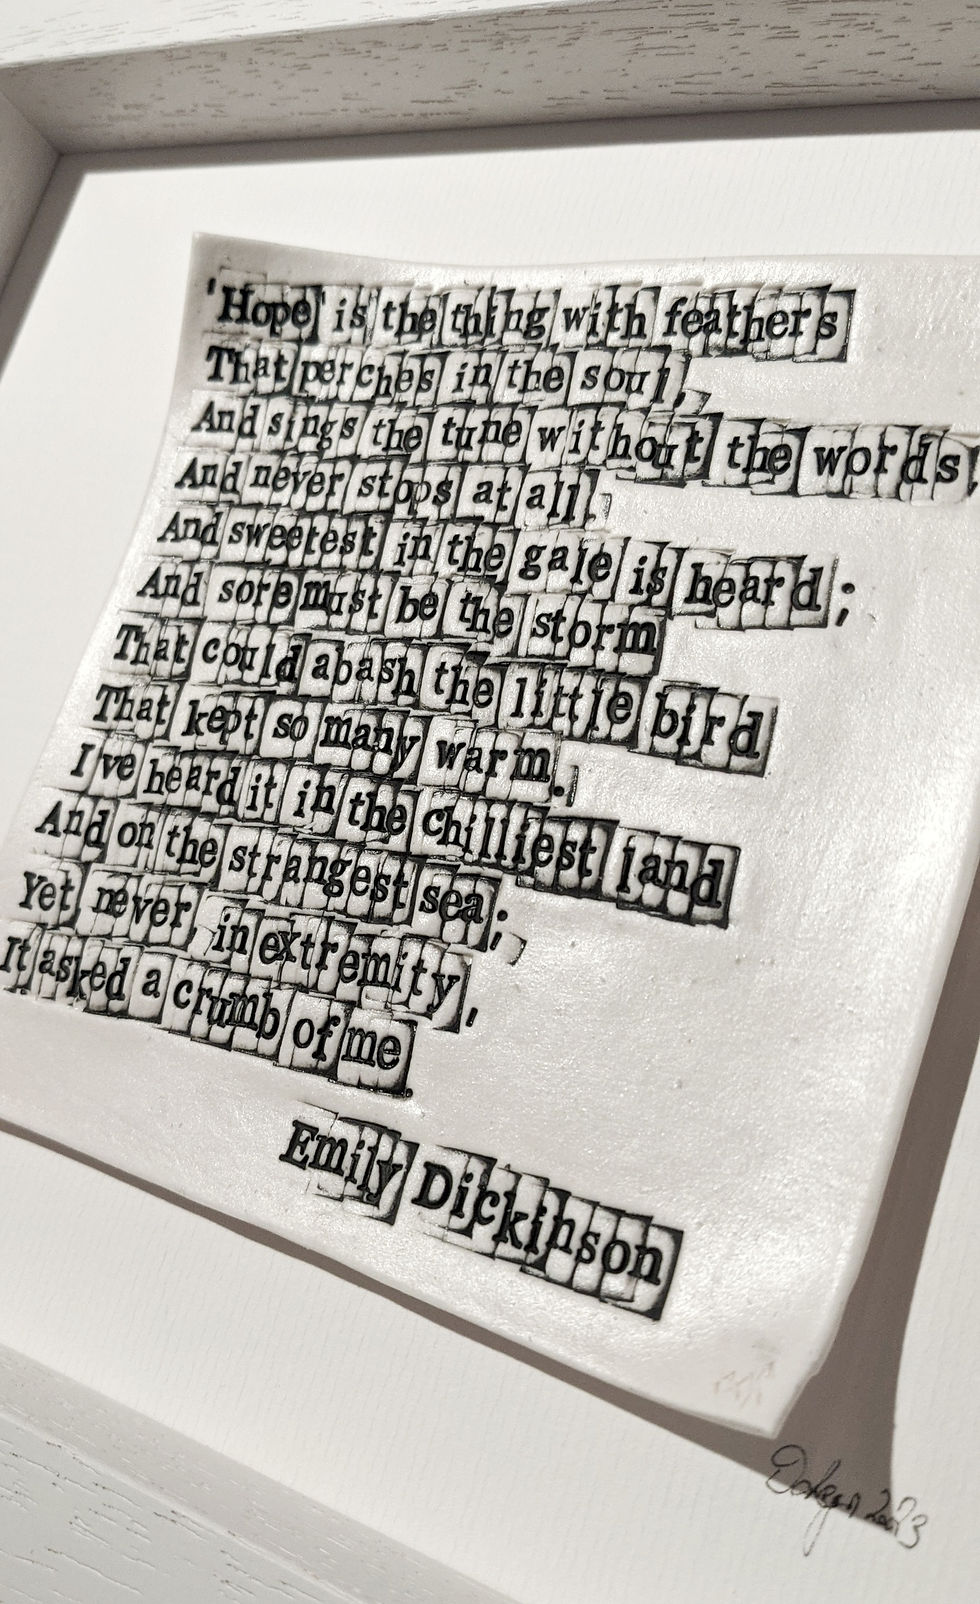 'Hope' is the thing with feathers
That perches in the soul,
And sings the tune without the words,
And never stops at all.
And sweetest in the gale is heard;
And sore must be the storm
That could abash the little bird
That kept so many warm.
I've heard it in the chilliest land
And on the strangest sea;
Yet never, in extremity,
It asked a crumb of me.
Emily Dickinson
2023